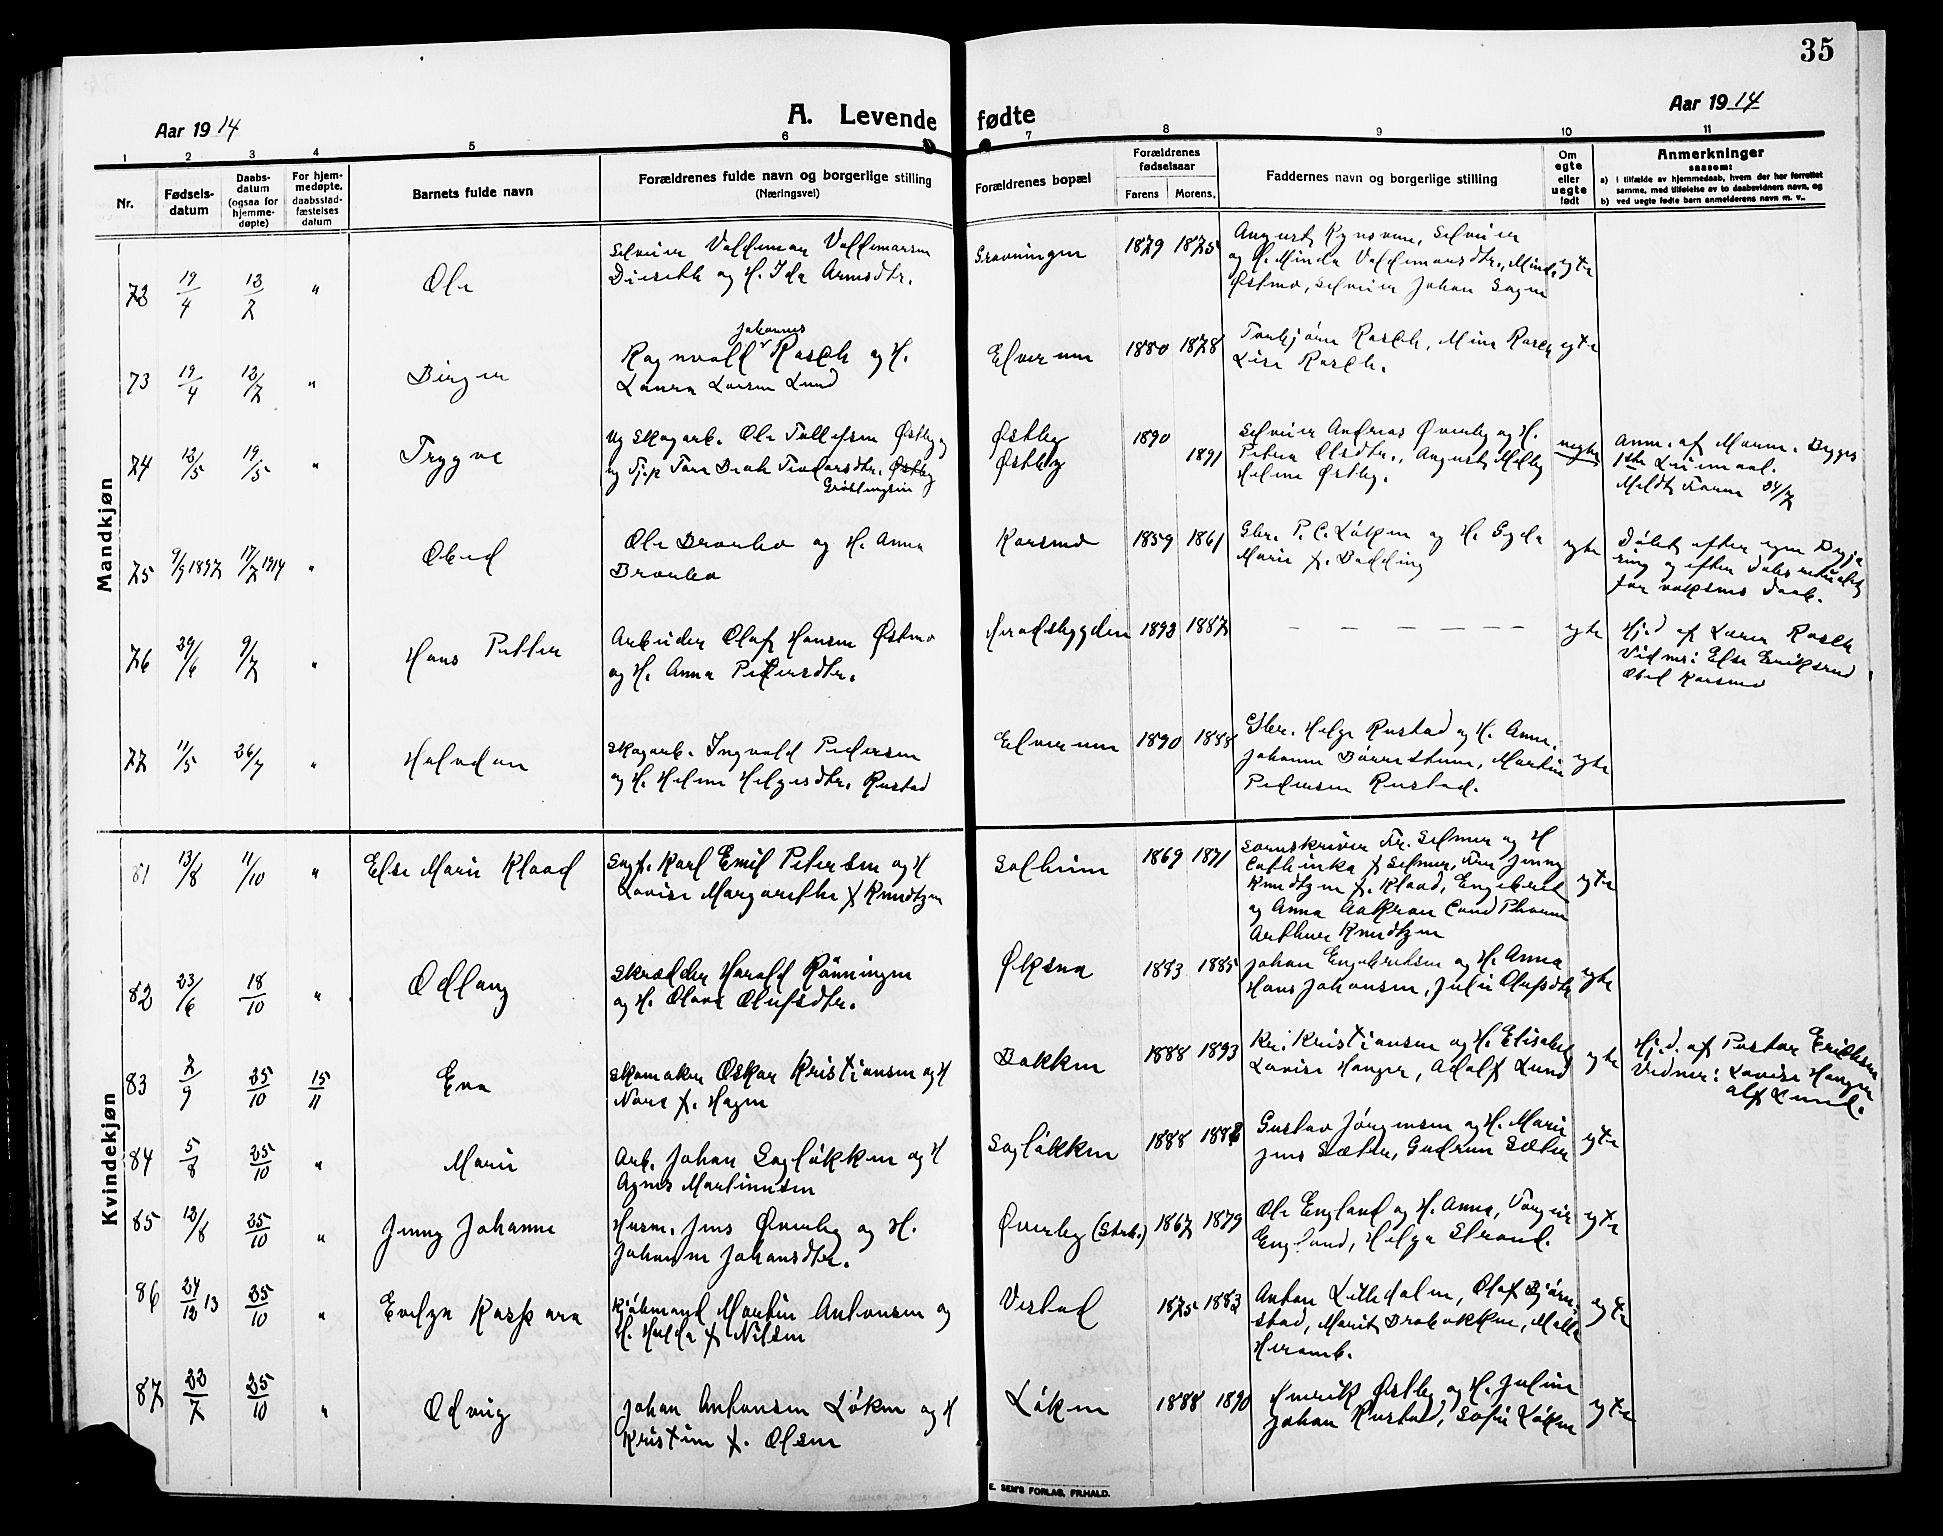 35
Aar 1914
A. Levende fødte
Aar 1914
1 2 3 4 5 6 7 8 9 10 11
Nr.
Fødsels-
datum
Daabs-
datum
(ogsaa for
hjemme-
døpte)
For hjem-
medøpte,
daabsstad-
fæstelses
datum
Barnets fulde navn
Forældrenes fulde navn og borgerlige stilling
(Næringsvei)
Forældrenes bopæl
Forældrenes
fødselsaar
Farens Morens.
Faddernes navn og borgerlige stilling
Om
egte
eller
uegte
født
Anmerkninger
saasom:
a) i tilfælde av hjemmedaab, hvem der har forrettet
samme, med tilføielse av to daabsvidners navn, og
b) ved uegte fødte barn anmelderens navn m. v..
Mandkjøn
72 19/4 12/7 " Ole
Selveier Valdemar Valdemarsen
og H. Ida Arnesdtr.
1879 1875
og H. Minda Valdemarsdtr.,
Østmo, Selveier Johan
egte
73 19/4 12/7 " Birger
Johannes
Ragnvald Rasch og H.
Laura Larsen Lund
Elverum 1880 1878
Torbjørn Rasch, Mina Rasch
Lise Rasch.
egte
74 12/5 19/5 " Trygve
Ug Skogarb. Ole Tollefsen Østby og
ug Tj.p Tora Østby
Østby
Østby
1890
1891
Selveier Andreas Øverby og H.
Petra Olsdtr., August Melby
Helene Østby.
uegte
Anm. af Moren.
1ste Leiermaal.
Meldt 24/7
75 9/9 1897 17/7 1914 " Obed
Ole Braenbo og H. Anna
Braenbo
Karsmo 1859 1861
Gbr. P. C. Løken og H. Gyda
Marie f. Dedding
egte
Døbt efter egen Begjæ
ring og efter
for voksnes Daab.
76 29/6 9/7 " Hans Petter
Arbeider Olaf Hansen Østmo
og H. Anna Petersdtr.
Heradsbygden 1893 1887
— — — — — — —
egte
Hj.d af Lærer Rasch
Vidner: Else Eriksrud
Obed Karsmo
77 11/5 26/7 " Halvdan
Skogarb. Ingvald Pedersen
og H. Helene Helgesdtr. Rustad
Elverum 1890 1888
Gbr. Helge Rustad og H. Anne.
Johanne Børrestuen, Martin
Pedersen Rustad.
egte
Kvindekjøn
81 13/8 11/10 " Else Marie Klaad
Sagf. Karl Emil Petersen og H
Lovise Margarethe f Knudtzen
Solheim 1869 1871
Sorenskriver Fr. Selmer og H
Cathinka f Selmer, Fru Jenny
Knudtzen f. Klaad, Engebret
og Anna Aakran Cand Pharm
Arthur Knudtzen
egte
82 23/6 18/10 " Odlaug
Skrædder Harald Rønningen
og H. Olava Olufsdtr.
Øksna 1883 1885
Johan Engebretsen og H. Anna
Hans Johansen, Julie Olufsdtr
egte
83 2/9 25/10 15/11 Eva
Skomaker Oskar Kristiansen og H
Nora f. Hagen
Bakken 1888 1893
Kr. Kristiansen og H. Elisabet
Lovise Hanger, Adolf Lund
egte
Hj.d. af Pastor Eriksen
Vidner: Lovise Hanger
Alf Lund.
84 5/8 25/10 " Marie
Arb. Johan Sagløkken og H
Agnes Martinusen
Sagløkken 1888
Gustav Jørgensen og H. Marie
Jens Sæter, Gudrun Sæter
egte
85 12/8 25/10 " Jenny Johanne
Husm. Jens Øverby og H.
Johanne Johansdtr.
Øverby (Strb.) 1867 1879
Ole England og H. Anna,
England, Helga Strand.
egte
86 24/12 13 25/10 " Evelyn Kaspara
Kjøbmand Martin Antonsen og
H. Hulda f Nilsen
Vestad 1875 1882
Anton Lilledalen, Olaf Bjørn-
stad, Marit Brobakken,
Heramb.
egte
87 22/7 25/10 " Odveig
Johan Antonsen Løken og H
Kristine f. Olsen
Løken 1888 1890
Henrik Østby og H. Juline
Johan Rustad, Sofie Løken
egte
E. SEM'S FORLAG, FR.HALD.